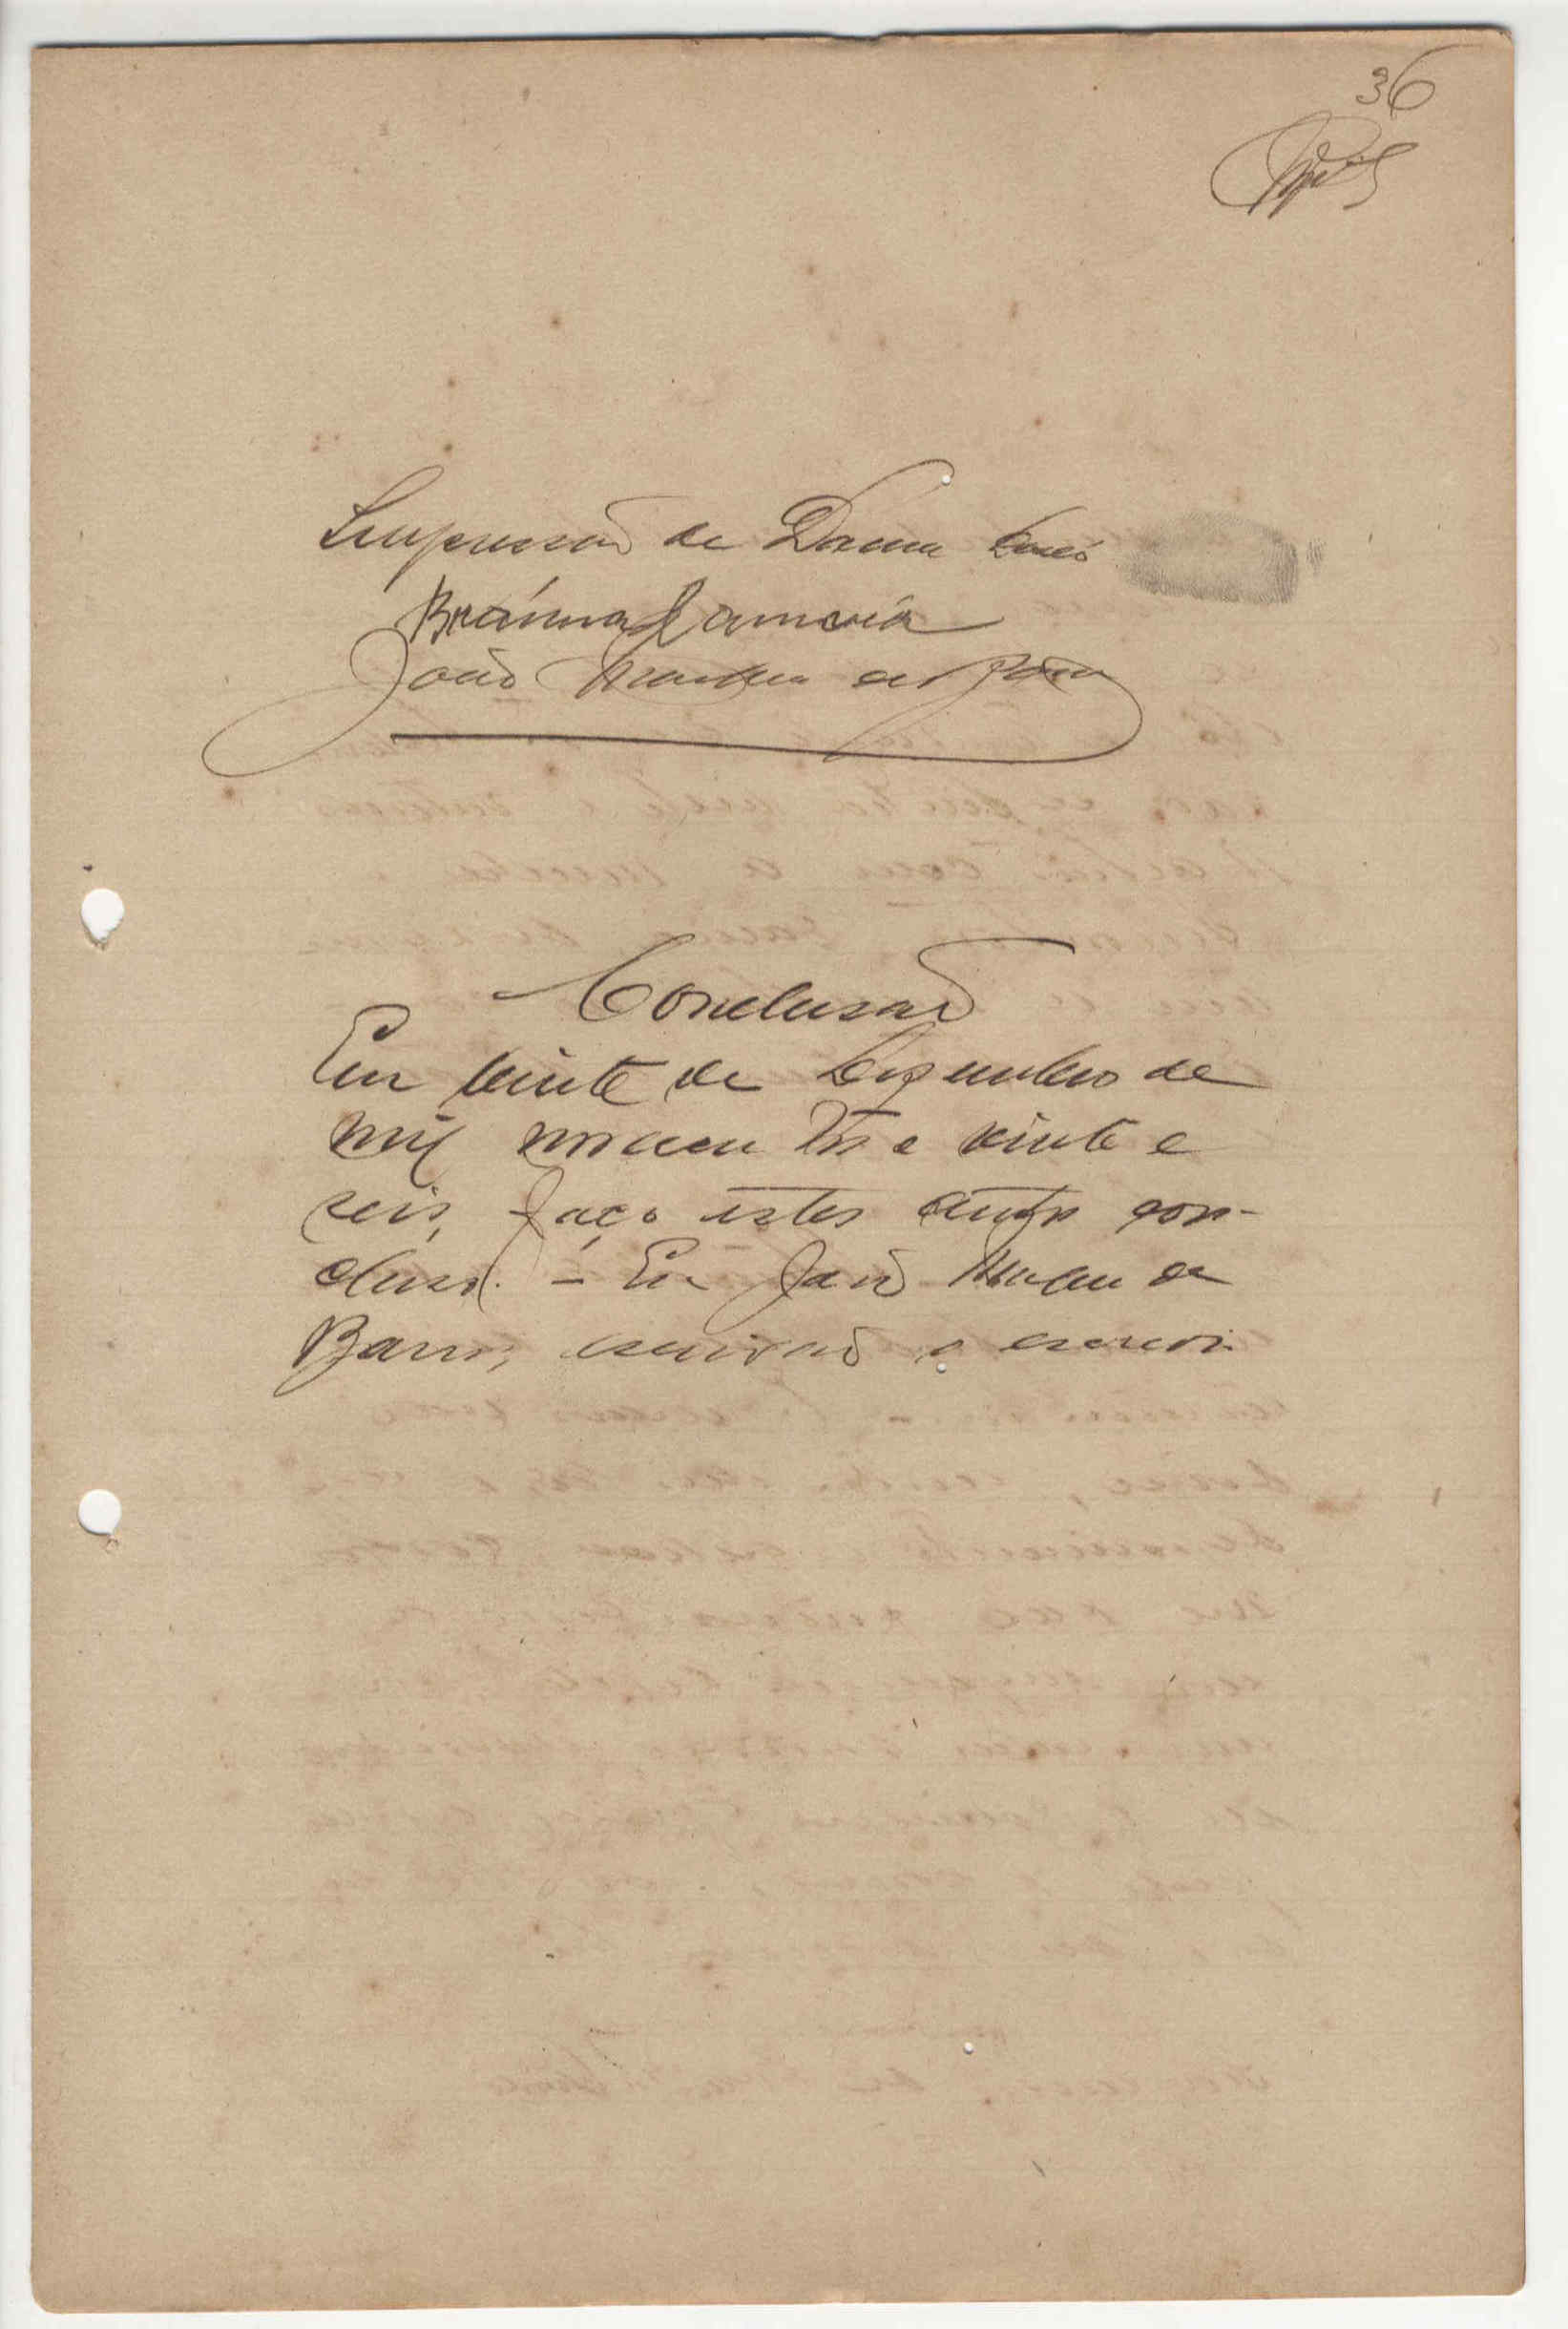 36
Impressão de Dama
João Martins de Barros
Conclusão
Em vinte de Dezembro de
mil novecentos e vinte e
seis, faço estes autos con-
clusos. - Eu João Martins de
Barros, escrivão o escrevi.